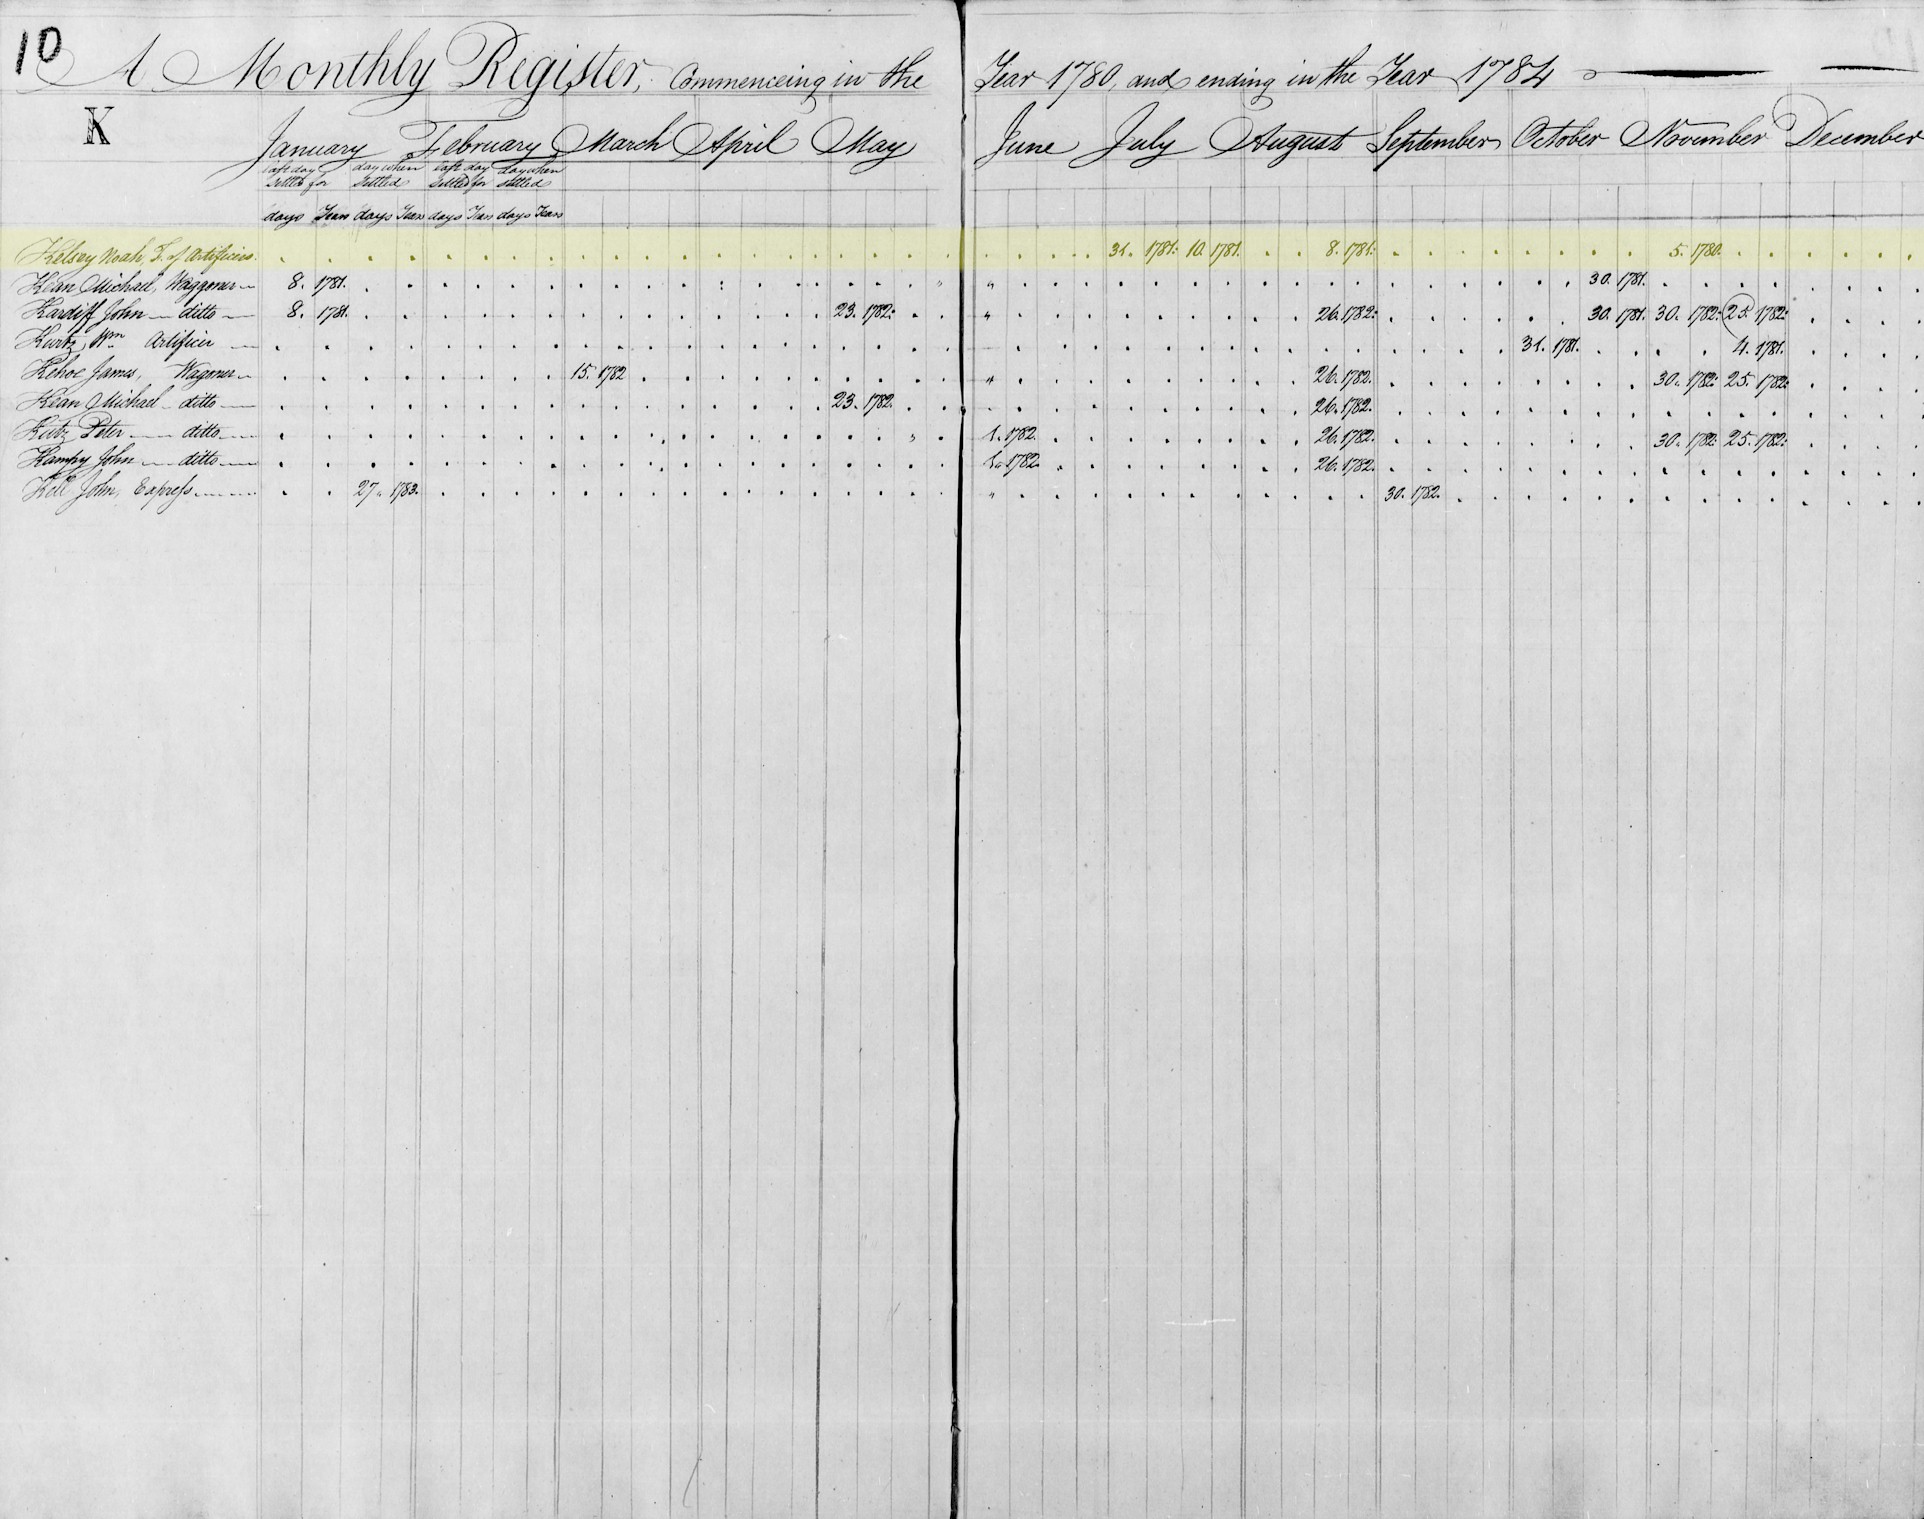 10
A Monthly Register, Commenceing in the Year 1780, and ending in the Year 1784
K
January February March April May June July August September October November December
last day settled for day when settled last day settled for day when settled
days Years days Years days Years days Years
Kelsey Noah, S. of Artificers. 31. 1781. 10. 1781. 8. 1781. 5. 1780.
Kean Michael, Waggoner 8. 1781. 30. 1781.
Kardiff John ditto 8. 1781. 23. 1782. 26. 1782. 30. 1781. 30. 1782. 25. 1782.
Kurtz, Wm Artificer 31. 1781. 4. 1781.
Kehoe James, Wagoner 15. 1782 26. 1782. 30. 1782. 25. 1782.
Kean Michael ditto 23. 1782. 26. 1782.
Kutz Peter ditto 1. 1782. 26. 1782. 30. 1782. 25. 1782.
Kampy John ditto 1. 1782. 26. 1782.
Kell John, Express 27. 1783. 30. 1782.